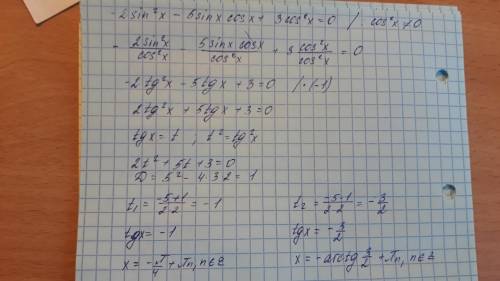 -2sin²x - 5sinx cosx + 3cos²x = 0 / cos²x ≠ 0
- 2sin²x/cos²x - 5sinx cosx/cos²x + 3 cos²x/cos²x = 0
-2tg²x - 5tgx + 3 = 0 /·(-1)
2tg²x + 5tgx + 3 = 0
tgx = t ; t² = tg²x
2t² + 5t + 3 = 0
D = 5² - 4·3·2 = 1
t₁ = (-5+1)/(2·2) = -1
t₂ = (-5-1)/(2·2) = -3/2
tgx = -1
tgx = -3/2
x = -π/4 + πn, n∈Z
x = -arctg 3/2 + πn, n∈Z